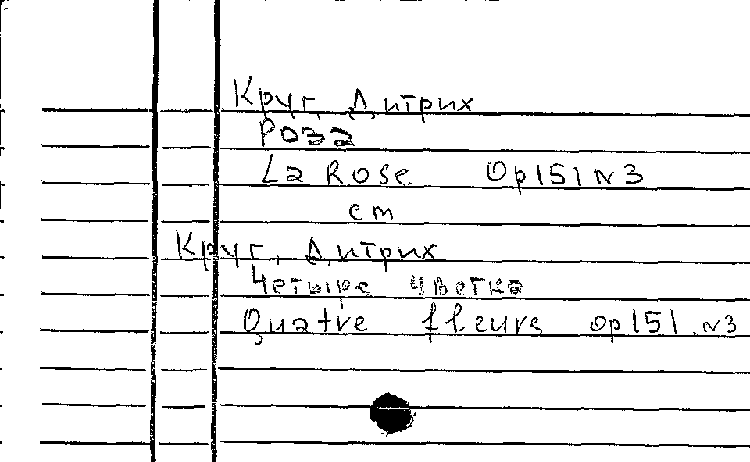 Круг, Дитрих
Роза
La Rose Op151 N3
см
Круг, Дитрих
Четыре цветка
Quatre fleurs op151. N3